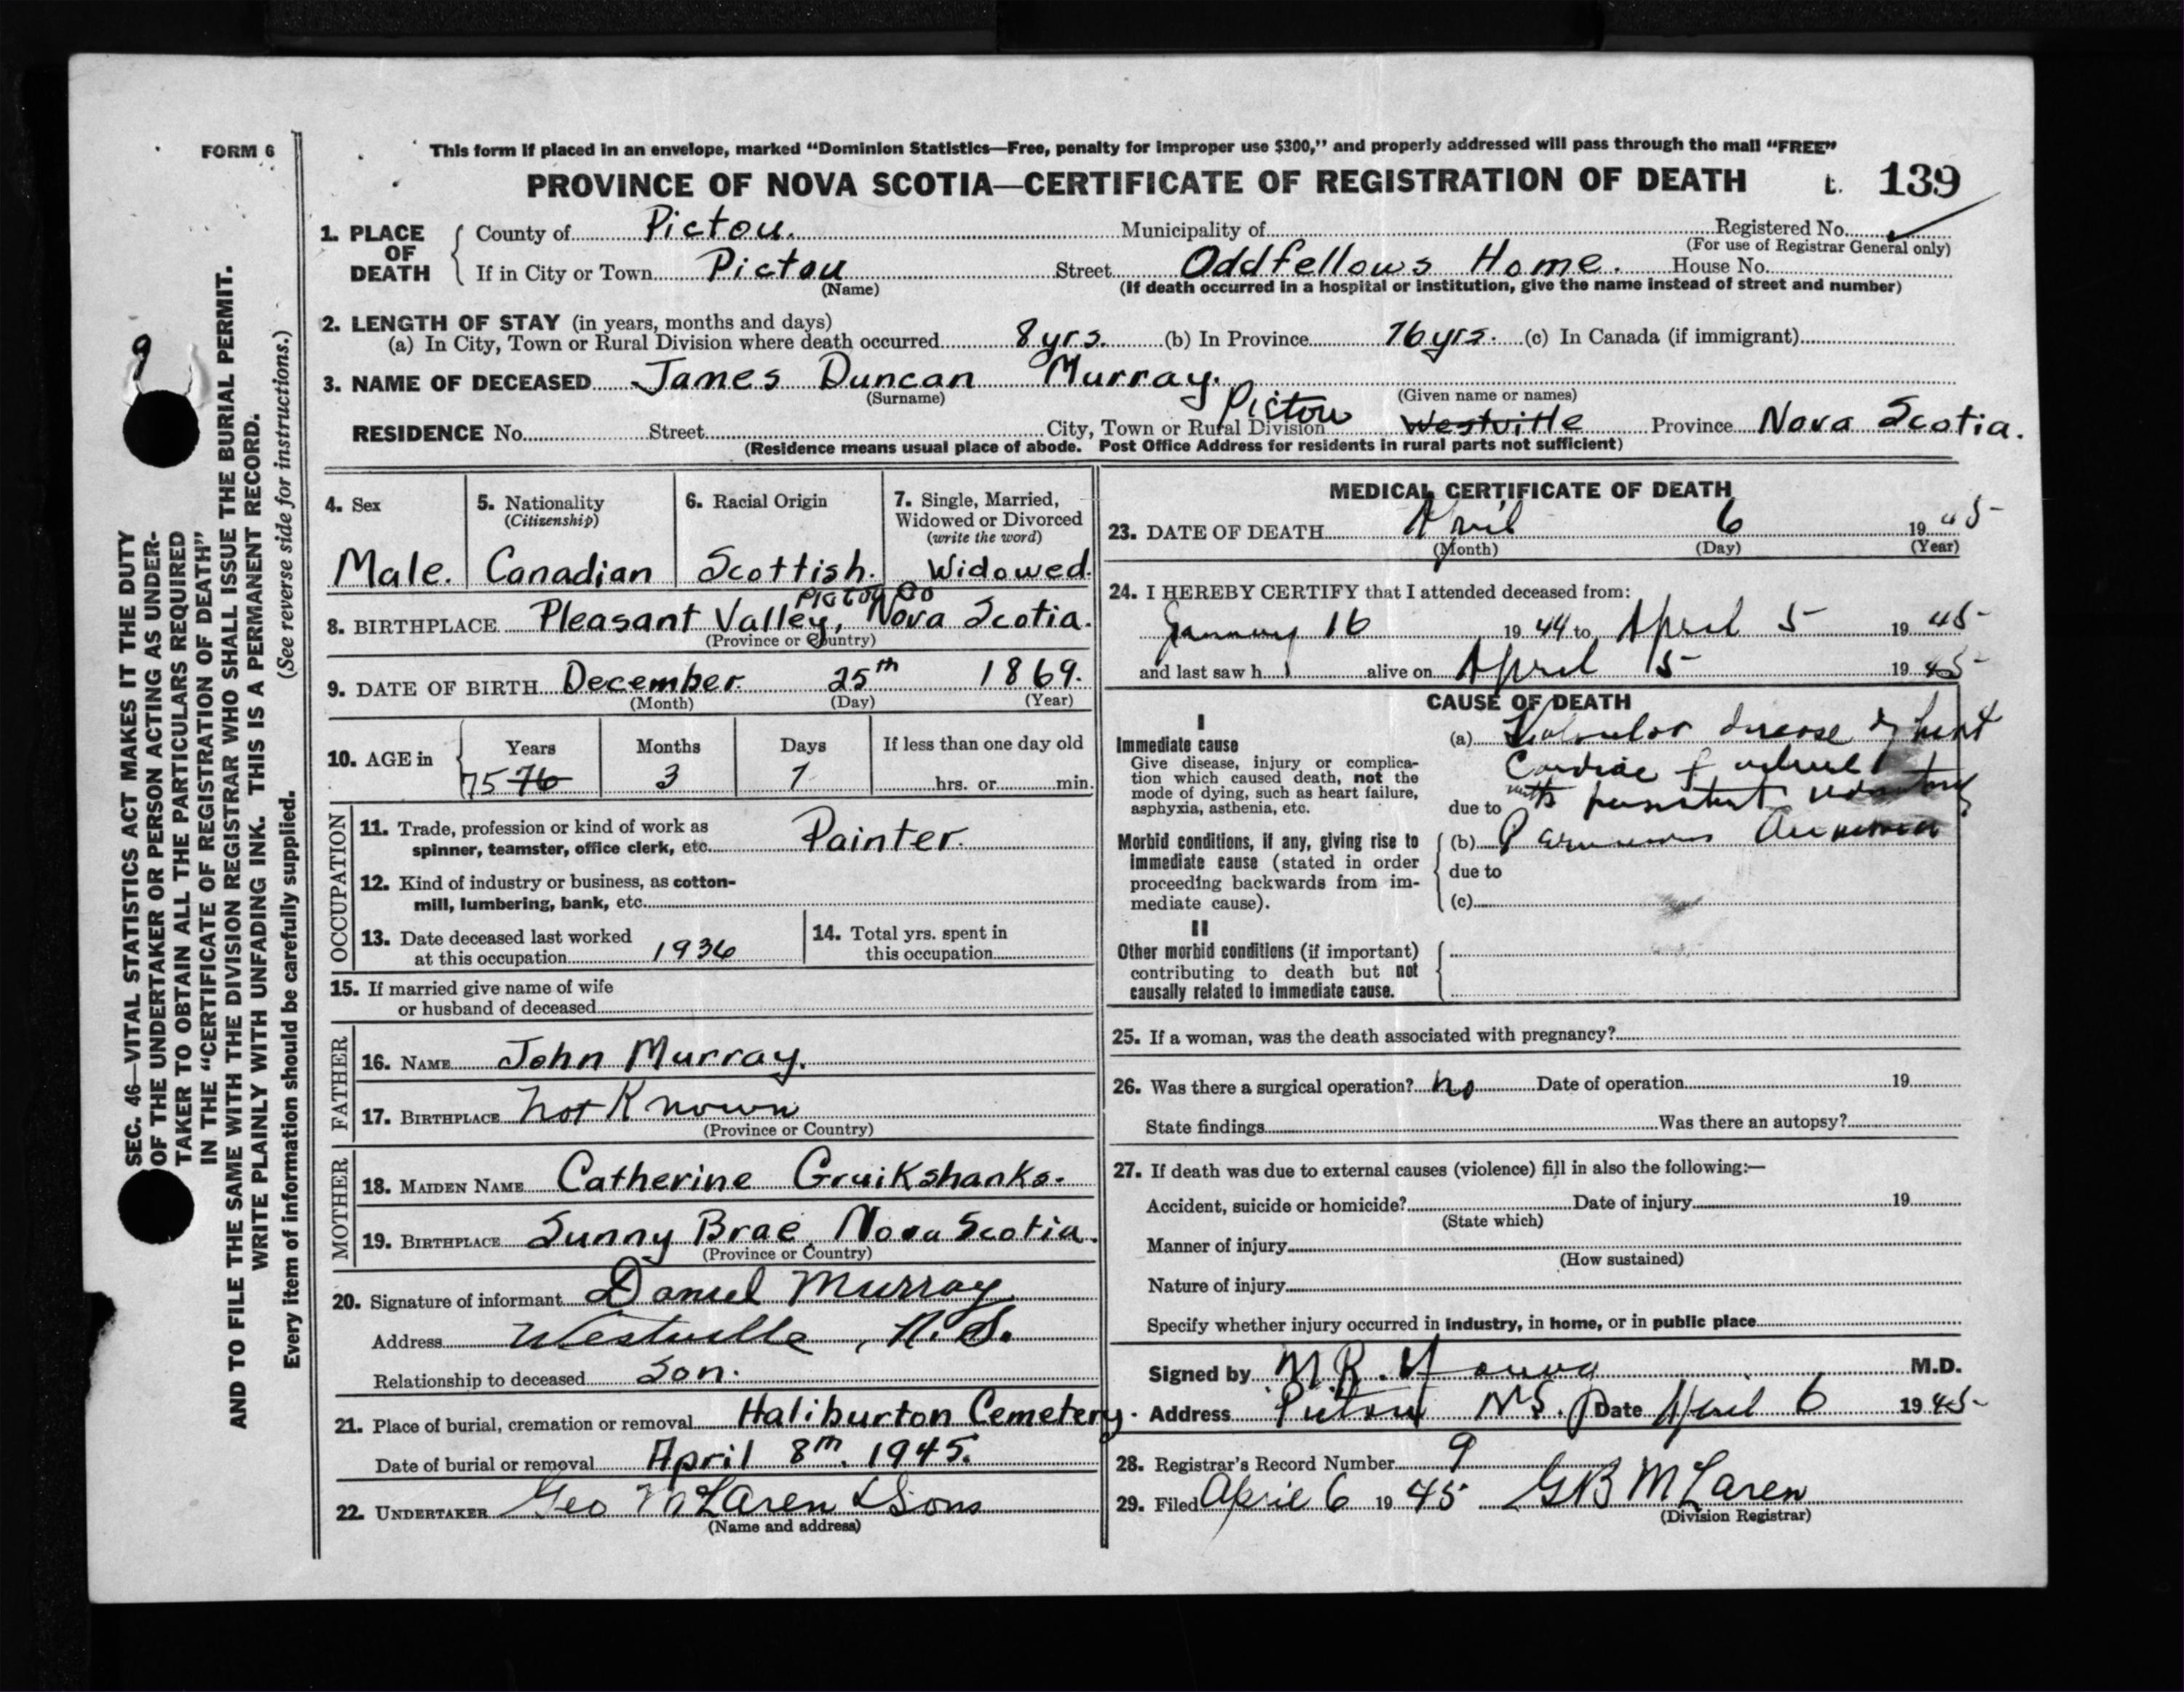 FORM 6
This form if placed in an envelope, marked "Dominion Statistics—Free, penalty for improper use $300," and properly addressed will pass through the mail "FREE"
PROVINCE OF NOVA SCOTIA—CERTIFICATE OF REGISTRATION OF DEATH 139
1. PLACE OF DEATH
County of Pictou. Municipality of Registered No.
(For use of Registrar General only)
If in City or Town Pictou Street Oddfellows Home. House No.
(Name) (If death occurred in a hospital or institution, give the name instead of street and number)
2. LENGTH OF STAY (in years, months and days)
(a) In City, Town or Rural Division where death occurred 8 yrs. (b) In Province 76 yrs. (c) In Canada (if immigrant)
3. NAME OF DECEASED James Duncan Murray.
(Surname) (Given name or names)
RESIDENCE No. Street City, Town or Rural Division Pictou Westville Province Nova Scotia.
(Residence means usual place of abode. Post Office Address for residents in rural parts not sufficient)
4. Sex
Male.
5. Nationality
(Citizenship)
Canadian
6. Racial Origin
Scottish.
7. Single, Married,
Widowed or Divorced
(write the word)
Widowed.
Pictou Co
8. BIRTHPLACE Pleasant Valley, Nova Scotia.
(Province or Country)
9. DATE OF BIRTH December 25th 1869.
(Month) (Day) (Year)
10. AGE in
Years Months Days If less than one day old
75 76 3 7 hrs. or min.
OCCUPATION
11. Trade, profession or kind of work as
spinner, teamster, office clerk, etc. Painter.
12. Kind of industry or business, as cotton-
mill, lumbering, bank, etc.
13. Date deceased last worked
at this occupation 1936
14. Total yrs. spent in
this occupation
15. If married give name of wife
or husband of deceased
FATHER
16. NAME John Murray.
17. BIRTHPLACE Not Known
(Province or Country)
MOTHER
18. MAIDEN NAME Catherine Gruikshanks.
19. BIRTHPLACE Sunny Brae, Nova Scotia.
(Province or Country)
20. Signature of informant Daniel Murray
Address Westville, N.S.
Relationship to deceased Son.
21. Place of burial, cremation or removal Haliburton Cemetery.
Date of burial or removal April 8th. 1945.
22. UNDERTAKER Geo McLaren & Sons
(Name and address)
MEDICAL CERTIFICATE OF DEATH
23. DATE OF DEATH April 6 1945
(Month) (Day) (Year)
24. I HEREBY CERTIFY that I attended deceased from:
January 16 1944 to April 5 1945
and last saw h alive on April 5 1945
CAUSE OF DEATH
I
Immediate cause
Give disease, injury or complica-
tion which caused death, not the
mode of dying, such as heart failure,
asphyxia, asthenia, etc.
(a) Valvular disease of heart
Cardiac
due to with persistent
Morbid conditions, if any, giving rise to
immediate cause (stated in order
proceeding backwards from im-
mediate cause).
(b)
due to
(c)
II
Other morbid conditions (if important)
contributing to death but not
causally related to immediate cause.
25. If a woman, was the death associated with pregnancy?
26. Was there a surgical operation? no Date of operation 19
State findings Was there an autopsy?
27. If death was due to external causes (violence) fill in also the following:—
Accident, suicide or homicide? Date of injury 19
(State which)
Manner of injury
(How sustained)
Nature of injury
Specify whether injury occurred in industry, in home, or in public place
Signed by M R. Young M.D.
Address Pictou N.S. Date April 6 1945
28. Registrar's Record Number 9
29. Filed April 6 1945 GB McLaren
(Division Registrar)
9
SEC. 46—VITAL STATISTICS ACT MAKES IT THE DUTY
OF THE UNDERTAKER OR PERSON ACTING AS UNDER-
TAKER TO OBTAIN ALL THE PARTICULARS REQUIRED
IN THE "CERTIFICATE OF REGISTRATION OF DEATH"
AND TO FILE THE SAME WITH THE DIVISION REGISTRAR WHO SHALL ISSUE THE BURIAL PERMIT.
WRITE PLAINLY WITH UNFADING INK. THIS IS A PERMANENT RECORD.
Every item of information should be carefully supplied. (See reverse side for instructions.)